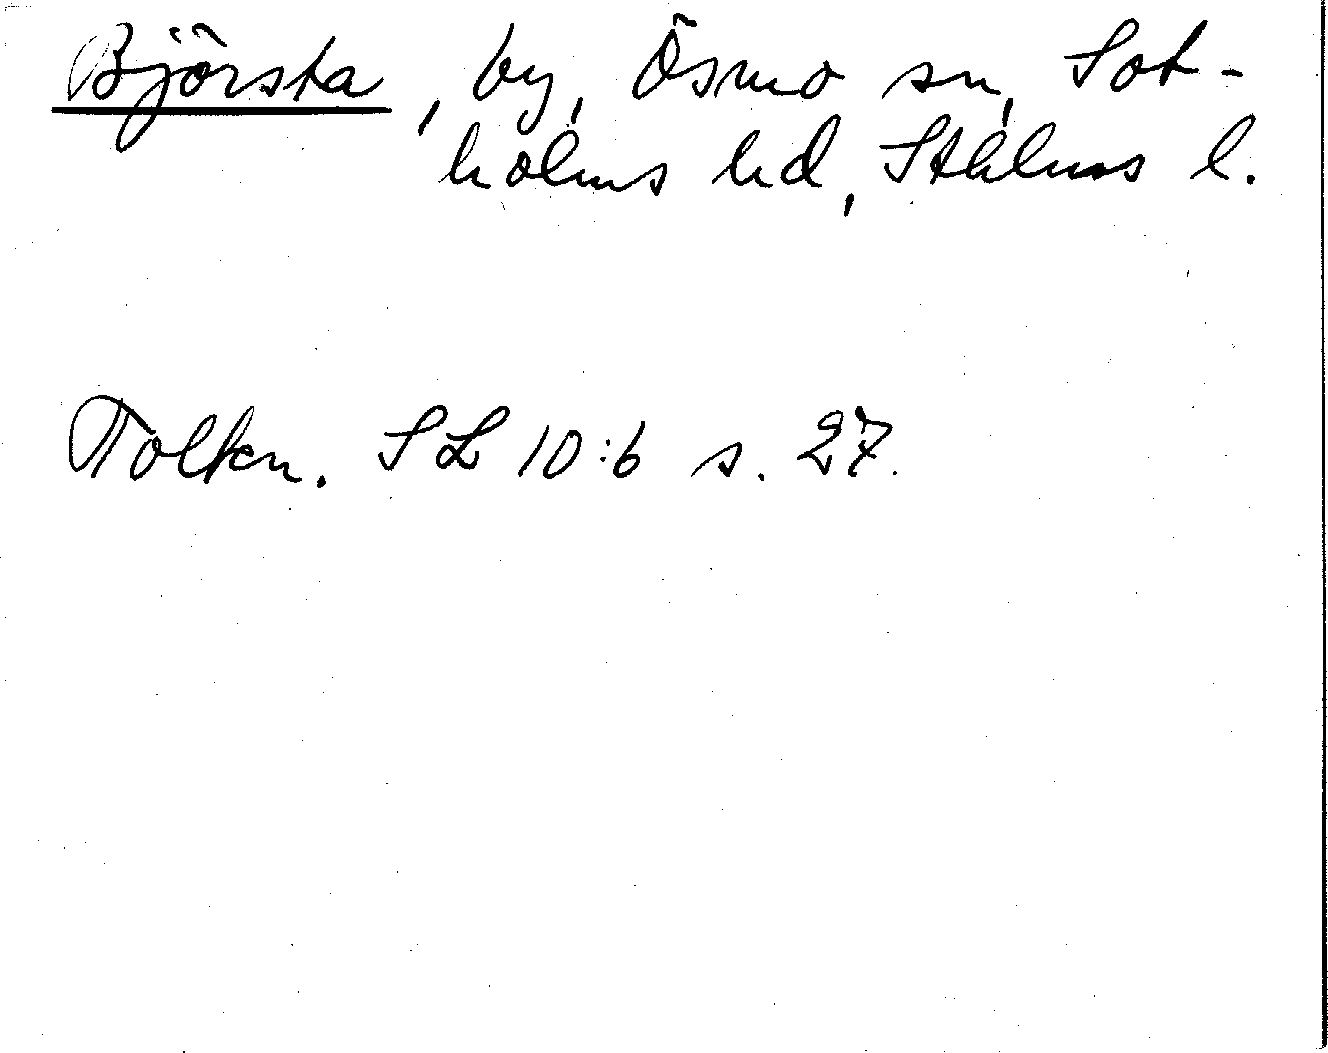 Björsta, by, Ösmo sn, Sot-
holms hd, Sthlms l.
Tolkn. SL 10:6 s. 27.